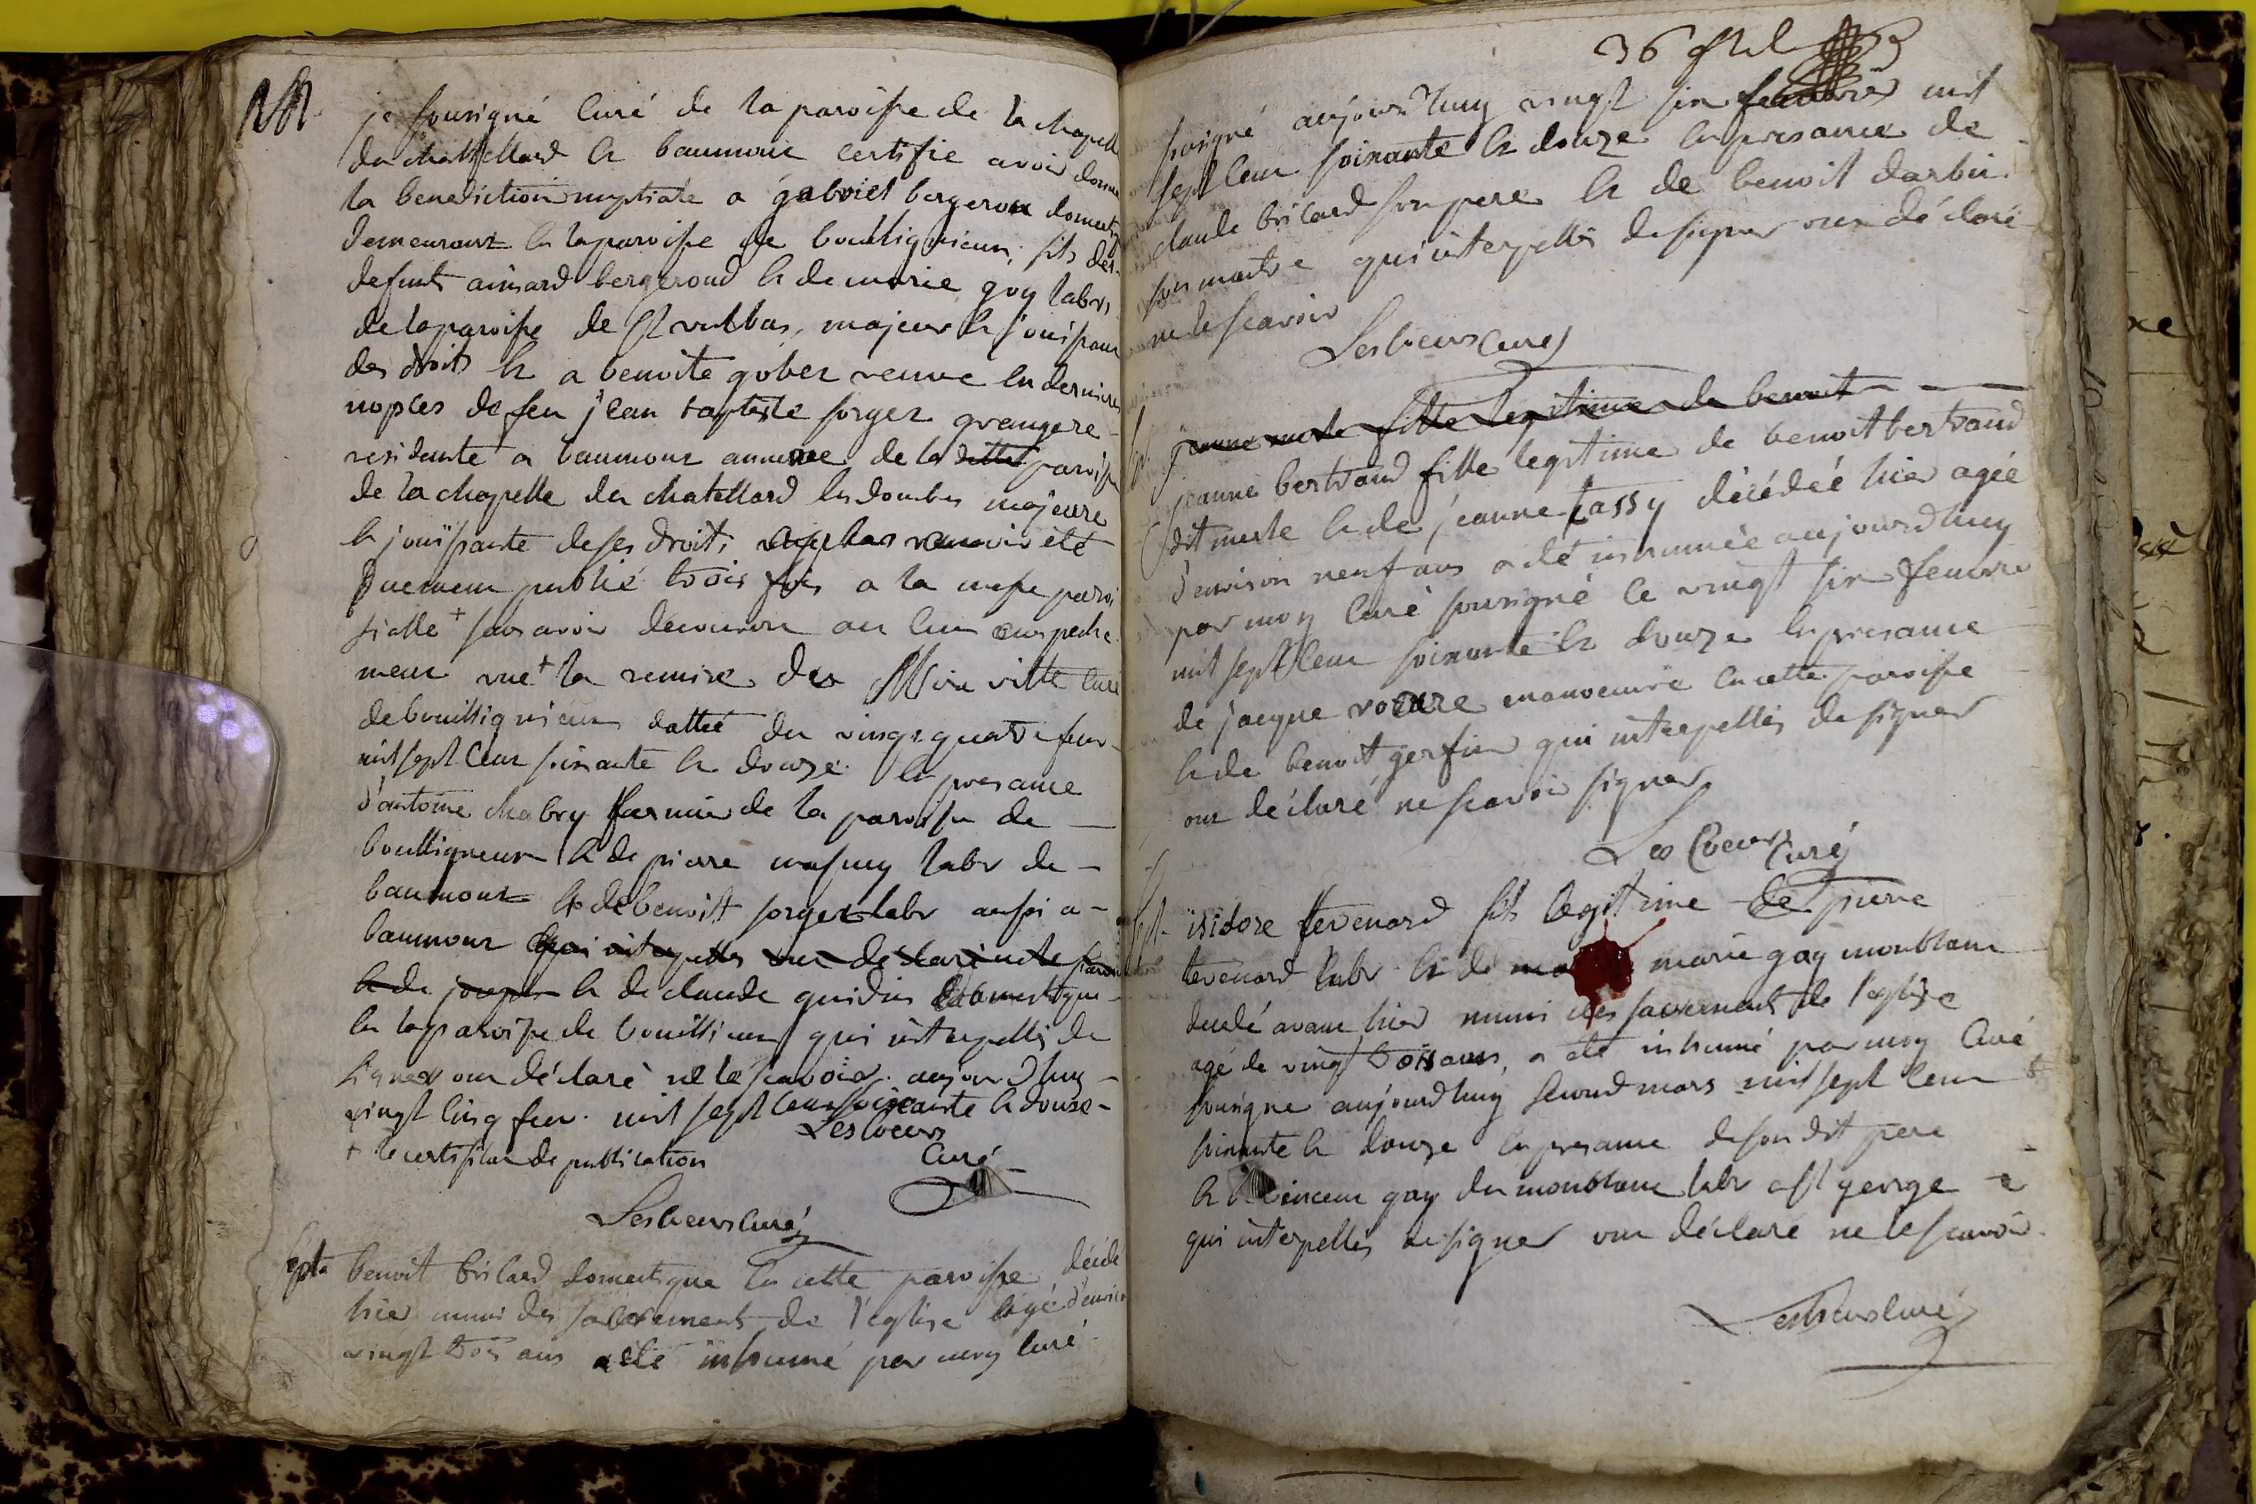 je sousigné curé de la paroisse de la chapelle
du chattellard et baumont certifie avoir donné
la benediction nuptiale a gabriel bergeron domestiq
demeurant en la paroisse de bouilligneux, fils des
defunts ainard bergeroud et de marie guy labrs
de la paroisse de st vulbas, majeur et jouissant
des droits et a benoite gober veuve en dernieres
nopces de feu jean baptiste forger grangere
residente a baumont annexe de la ditte paroisse
de la chapelle du chatellard en dombes majeure
et jouissante de ses droits, été
duement publié trois fois a la messe paroi
sialle + sans avoir decouvert aucun empeche
ment vue + la remise du Mre ville curé
de bouilligneux dattée du vingt quatre fevr
mil sept cent soixante et douze en presance
d'antoine chabry fermier de la paroisse de
bouilligneux et de pierre labr de
baumont et de benoist forger labr aussi a
baumont qui interpellés ont déclaré ne le scavoir
et de et de claude guidin domestique
en la paroisse de bouillieux qui interpellés de
signer ont déclaré ne le scavoir. aujourdhuy
vingt cinq fevr. mil sept cent soixante et douze
+ le certificat de publication
Lescoeurs
Curé
Lescoeurs curé
spta benoit brilard domestique en cette paroisse décédé
hier muni des sacrements de l'eglise agé d'environ
vingt trois ans a été inhumé par moy curé
36
sousigné aujourdhuy vingt six fevrier mil
sept cent soixante et douze en presance de
claude brilard son pere et de benoit darbu
son maitre qui interpellés de signer ont déclaré
ne le scavoir
Lescoeurs curé
jeanne fille legitime de benoit
spt. jeanne bertrand fille legitime de benoit bertrand
dit merle et de jeanne tassy décédée hier agée
d'environ neuf ans a été inhumée aujourdhuy
par moy curé sousigné ce vingt six fevrier
mil sept cent soixante et douze en presance
de jacque manoeuvre en cette paroisse
et de benoit gerfin qui interpellés de signer
ont déclaré ne scavoir signer
Lescoeurs curé
spt. isidore tevenard fils legitime de pierre
tevenard labr et de marie gay monblanc
decedé avant hier muni des sacrements de l'eglise
agé de vingt trois ans, a été inhumé par moy curé
sousigne aujourdhuy second mars mil sept cent
soixante et douze en presance de son dit pere
et vincent gay du monblanc labr a st george
qui interpellés de signer ont déclaré ne le scavoir
Lescoeurs curé